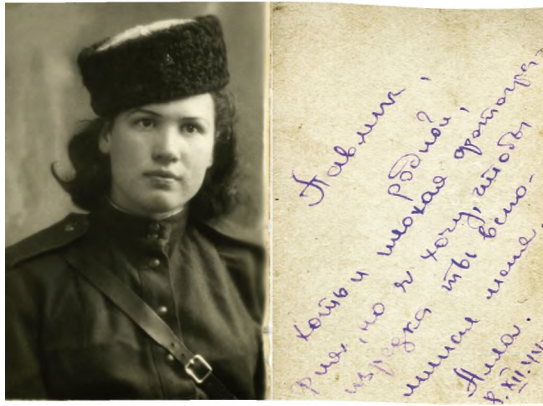 Павлик,
родной,
хоть и плохая фотогра-
фия, но я хочу, чтобы
изредка ты вспо-
минал меня.
Алла.
8.XII.44